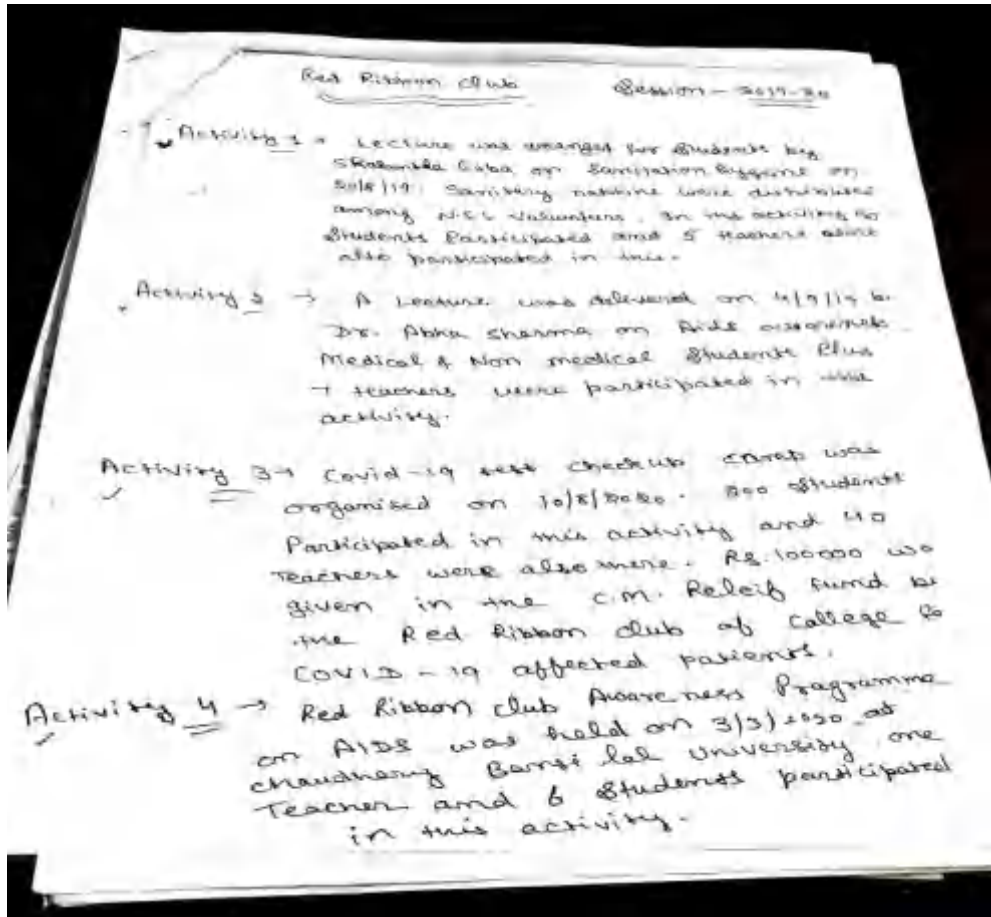 Red Ribbon Club Session - 2019-20
Activity 1 → Lecture was arranged for Students by
on Sanitation hygiene on
20/8/19. Sanitary were distributed
among N.S.S Volunteers. In this activity
Students Participated and 5 teachers
also participated in this.
Activity 2 → A Lecture was delivered on 4/9/19
Dr. Abha Sharma on Aids awareness
Medical & Non medical Students Plus
7 teachers were participated in
activity.
Activity 3 → Covid-19 test checkup camp was
organised on 10/8/2020. 200 Students
Participated in this activity and 40
Teachers were also there. Rs. 100000
given in the C.M. Releif fund
the Red Ribbon club of College
COVID-19 affected patients.
Activity 4 → Red Ribbon club Awareness Programme
on AIDS was held on 3/3/2020 at
Chaudhary Bansi lal University one
Teacher and 6 Students participated
in this activity.